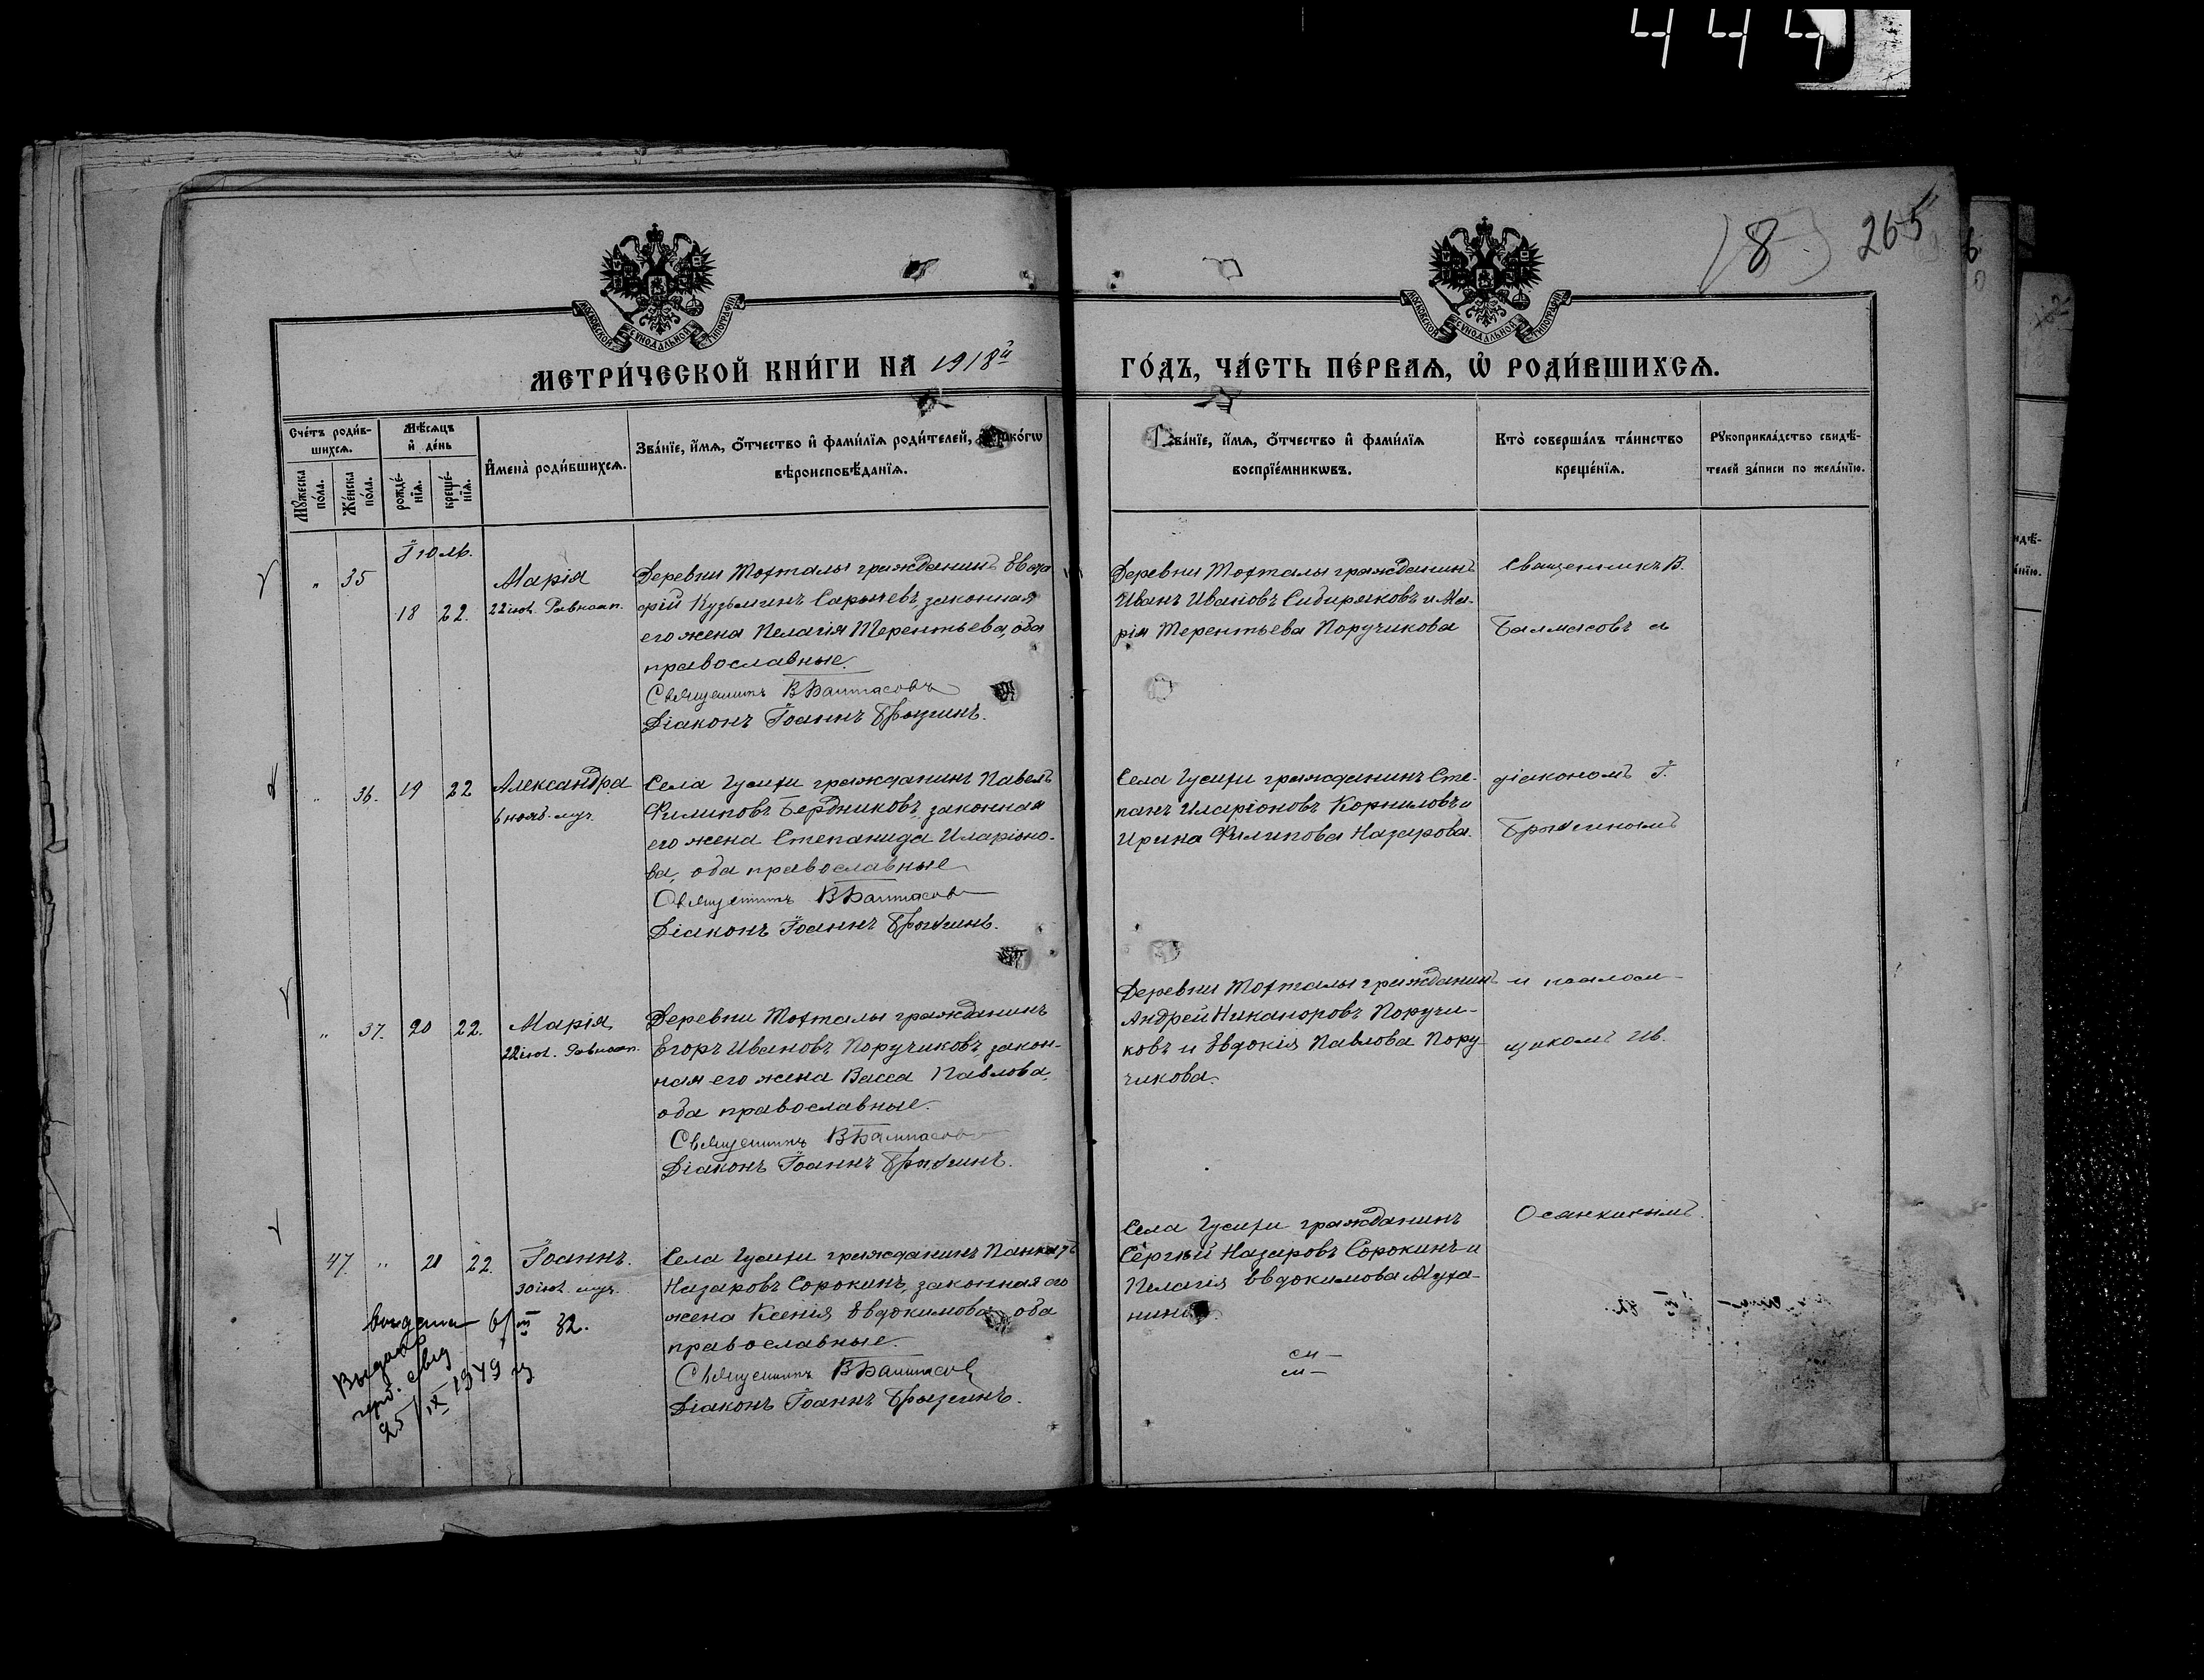 444
(8) 265
МОСКОВСКОЙ СѴНОДАЛЬНОЙ ТИПОГРАФІИ
МОСКОВСКОЙ СѴНОДАЛЬНОЙ ТИПОГРАФІИ
МЕТРИ́ЧЕСКОЙ КНИ́ГИ НА 1918й ГО́ДЪ, ЧА́СТЬ ПЕ́РВАѦ, Ѡ҆ РОДИ́ВШИХСѦ.
Сче́тъ роди́в-
шихсѧ.
Мꙋ́жеска по́ла.
Же́нска по́ла.
Мѣ́сѧцъ
и҆ де́нь
рожде́-
нїѧ.
креще́-
нїѧ.
И҆мена̀ роди́вшихсѧ.
Зва́нїе, и҆́мѧ, ѻ҆́тчество и҆ фами́лїѧ роди́телей,
вѣроисповѣ́данїѧ.
Зва́нїе, и҆́мѧ, ѻ҆́тчество и҆ фами́лїѧ
воспрїе́мникѡвъ.
Кто̀ соверша́лъ та́инство
креще́нїѧ.
Рꙋкоприкла́дство свидѣ́-
телей за́писи по жела́нїю.
Іюль.
" 35 18 22. Марія
22 іюл. Равноап.
Деревни Тохталы гражданинъ
фій Кузьминъ Сарычевъ, законная
его жена Пелагія Терентьева, оба
православные.
Священникъ В Балтасовъ
Діаконъ Іоаннъ
Деревни Тохталы гражданинъ
Иванъ Ивановъ Сибиряковъ и Ма-
рія Терентьева Поручикова
Священникъ В.
съ
" 36. 19 22 Александра
6 нояб. муч.
Села гражданинъ Павелъ
Филиповъ Бердниковъ, законная
его жена Степанида Иларіоно-
ва, оба православные
Священникъ В Балтасовъ
Діаконъ Іоаннъ
Села гражданинъ Сте-
панъ Иларіоновъ Корниловъ и
Ирина Филипова Назарова.
діакономъ І.
" 37. 20 22. Марія
22 іюл. Равноап.
Деревни Тохталы гражданинъ
Егоръ Ивановъ Поручиковъ, закон-
ная его жена Васса Павлова,
оба православные.
Священникъ В Балтасовъ
Діаконъ Іоаннъ
Деревни Тохталы гражданинъ
Андрей Никаноровъ Поручи-
ковъ и Евдокія Павлова Пору-
чикова.
и псалом-
щикомъ Ив.
Осанкинымъ.
47. " 21 22. Іоаннъ.
30 іюл. муч.
Села гражданинъ
Назаровъ Сорокинъ, законная его
жена Ксенія Евдокимова, оба
православные.
Священникъ В Балтасов
Діаконъ Іоаннъ
Села гражданинъ
Сергѣй Назаровъ Сорокинъ и
Пелагія Евдокимова Муха-
нина.
выдана 6/III 32.
Выдано
свид
25/IX 1949 г